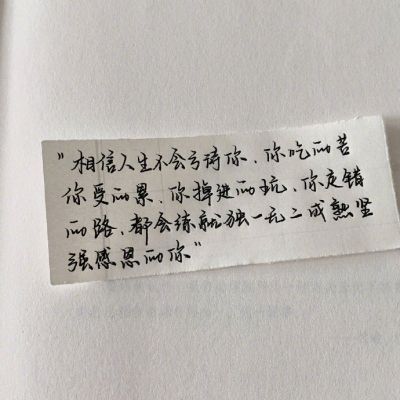 "相信人生不会亏待你、你吃的苦
你受的累、你掉进的坑、你走错
的路、都会练就独一无二成熟坚
强感恩的你"